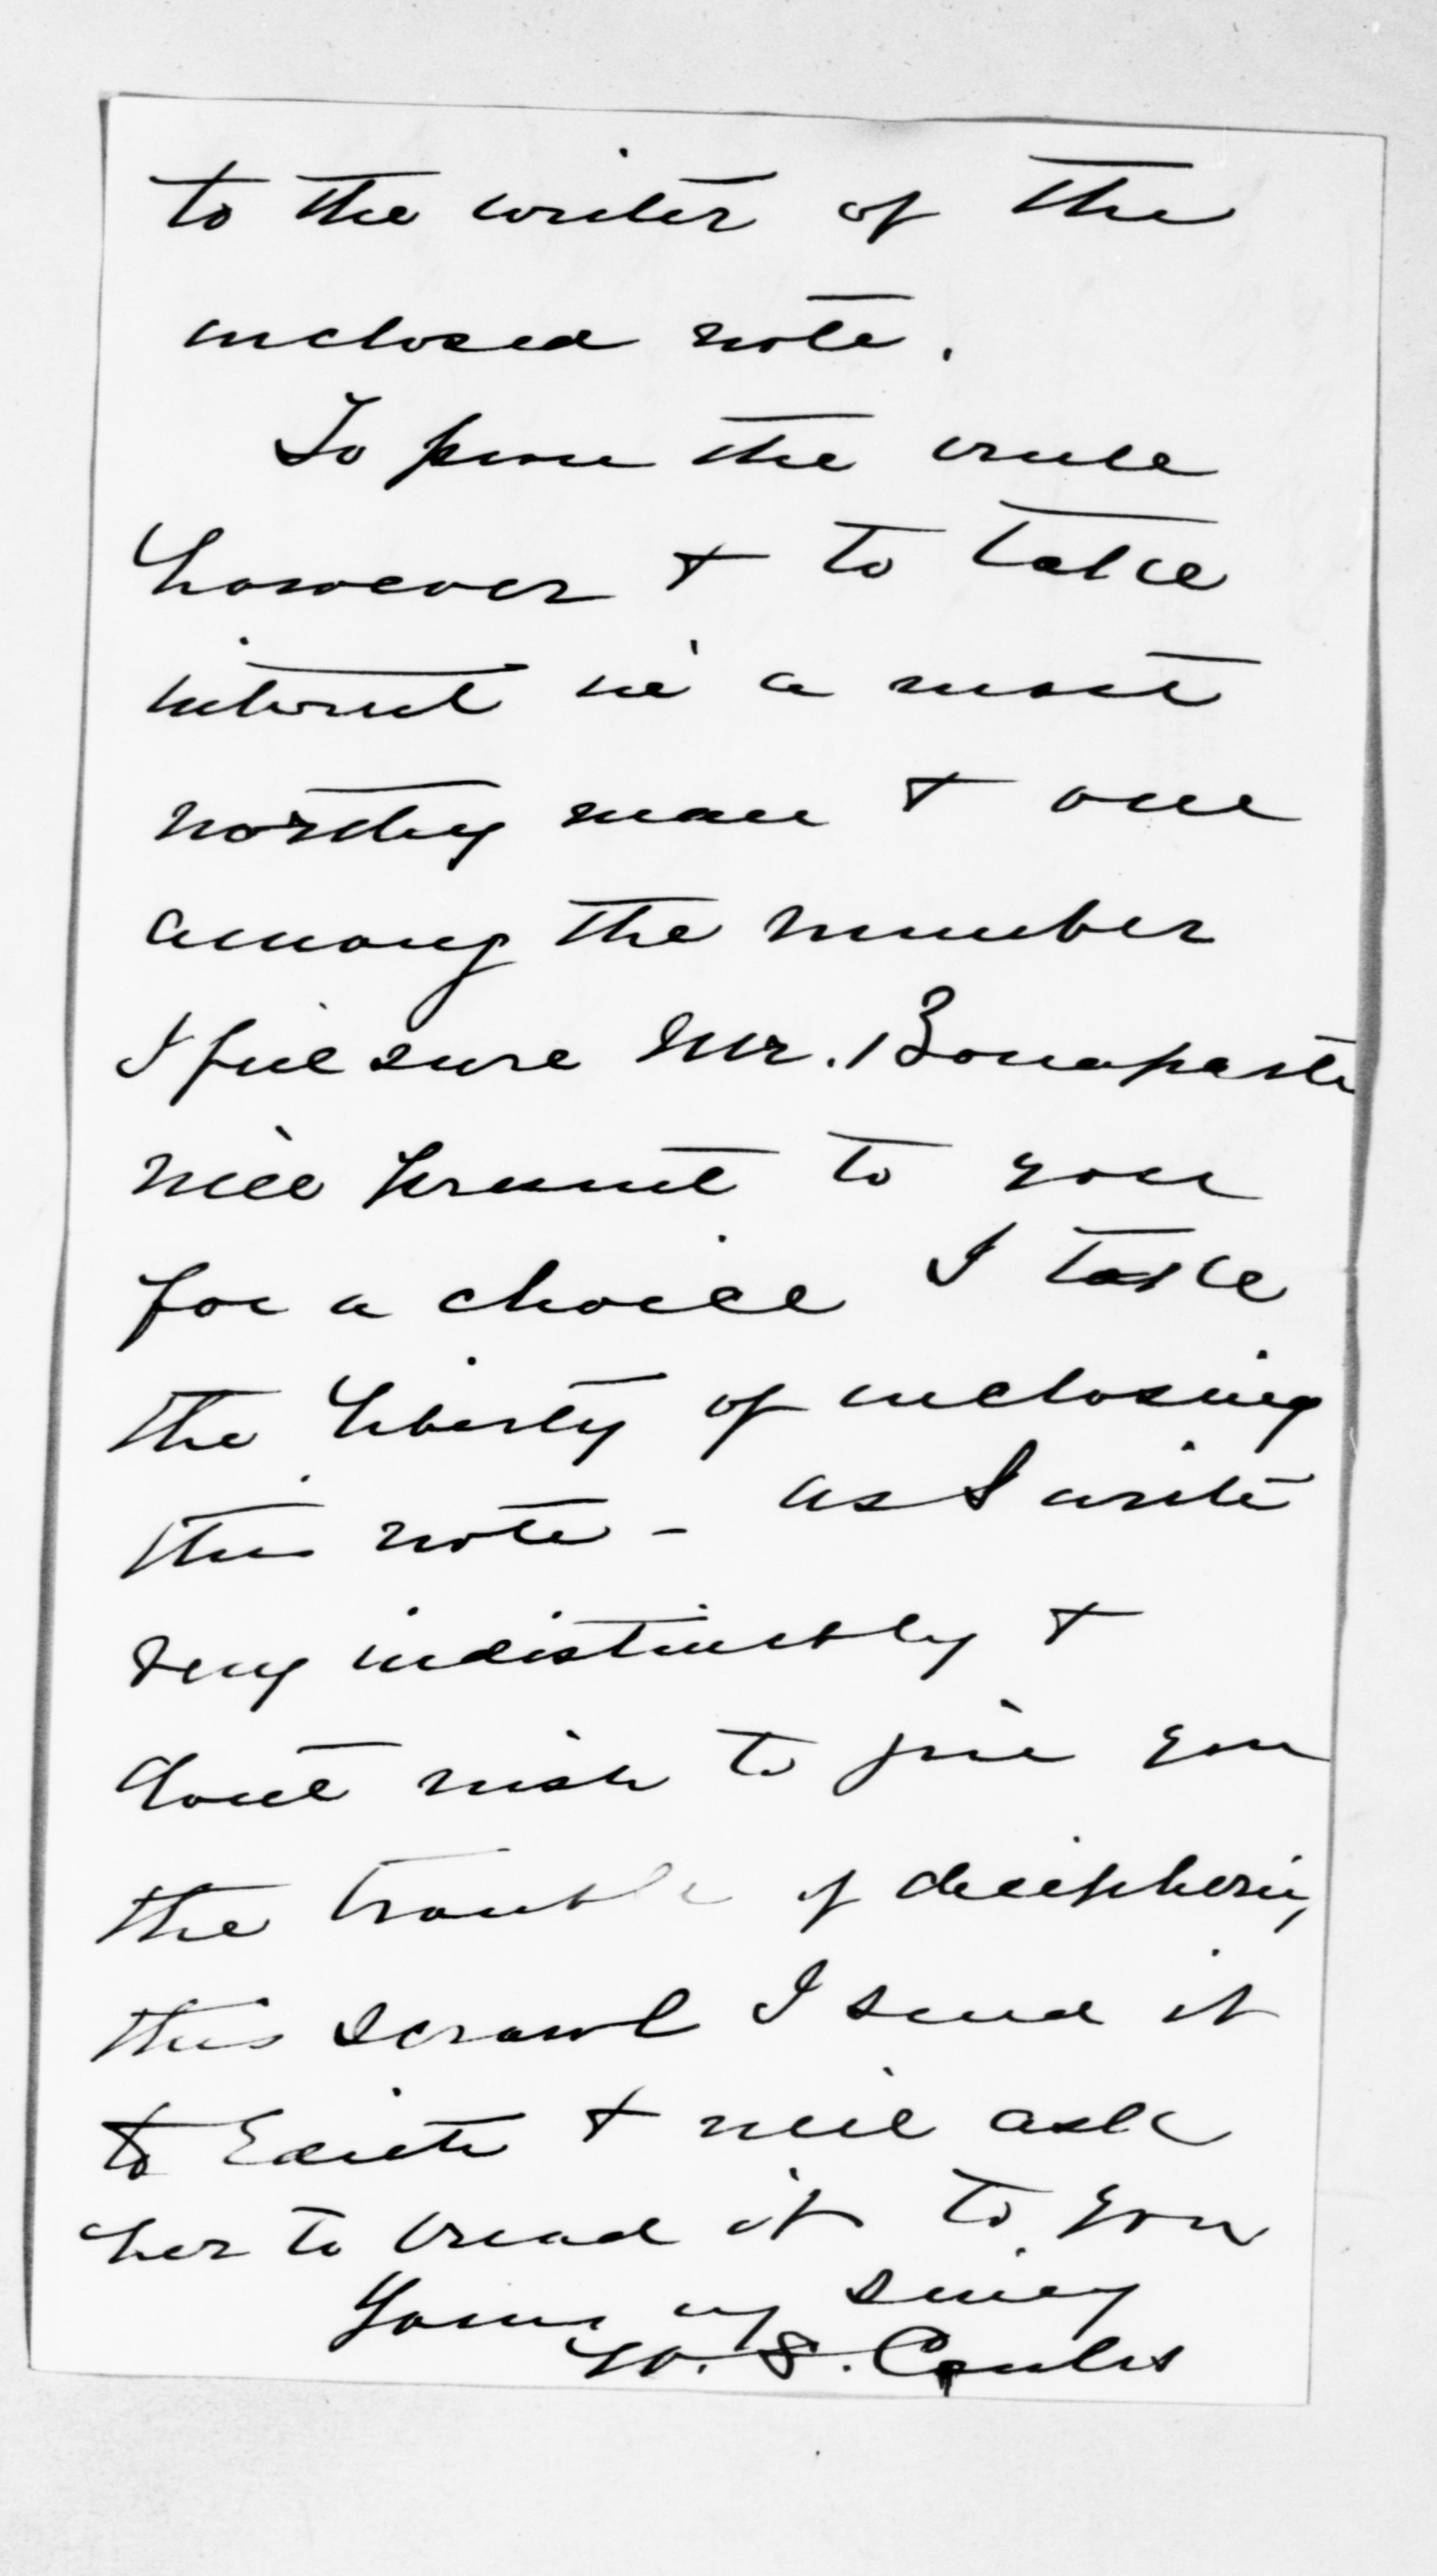 to the writer of the
inclosed note.
To prove the rule
however & to take
interest in a most
worthy man & one
among the number
I feel sure Mr. Bonaparte
will present to you
for a choice I take
the liberty of inclosing
this note - as I write
very indistinctly &
dont wish to give you
the trouble of deciphering
this scrawl I send it
to Edith & will ask
her to read it to you
Yours very sincy
W. S. Cowles